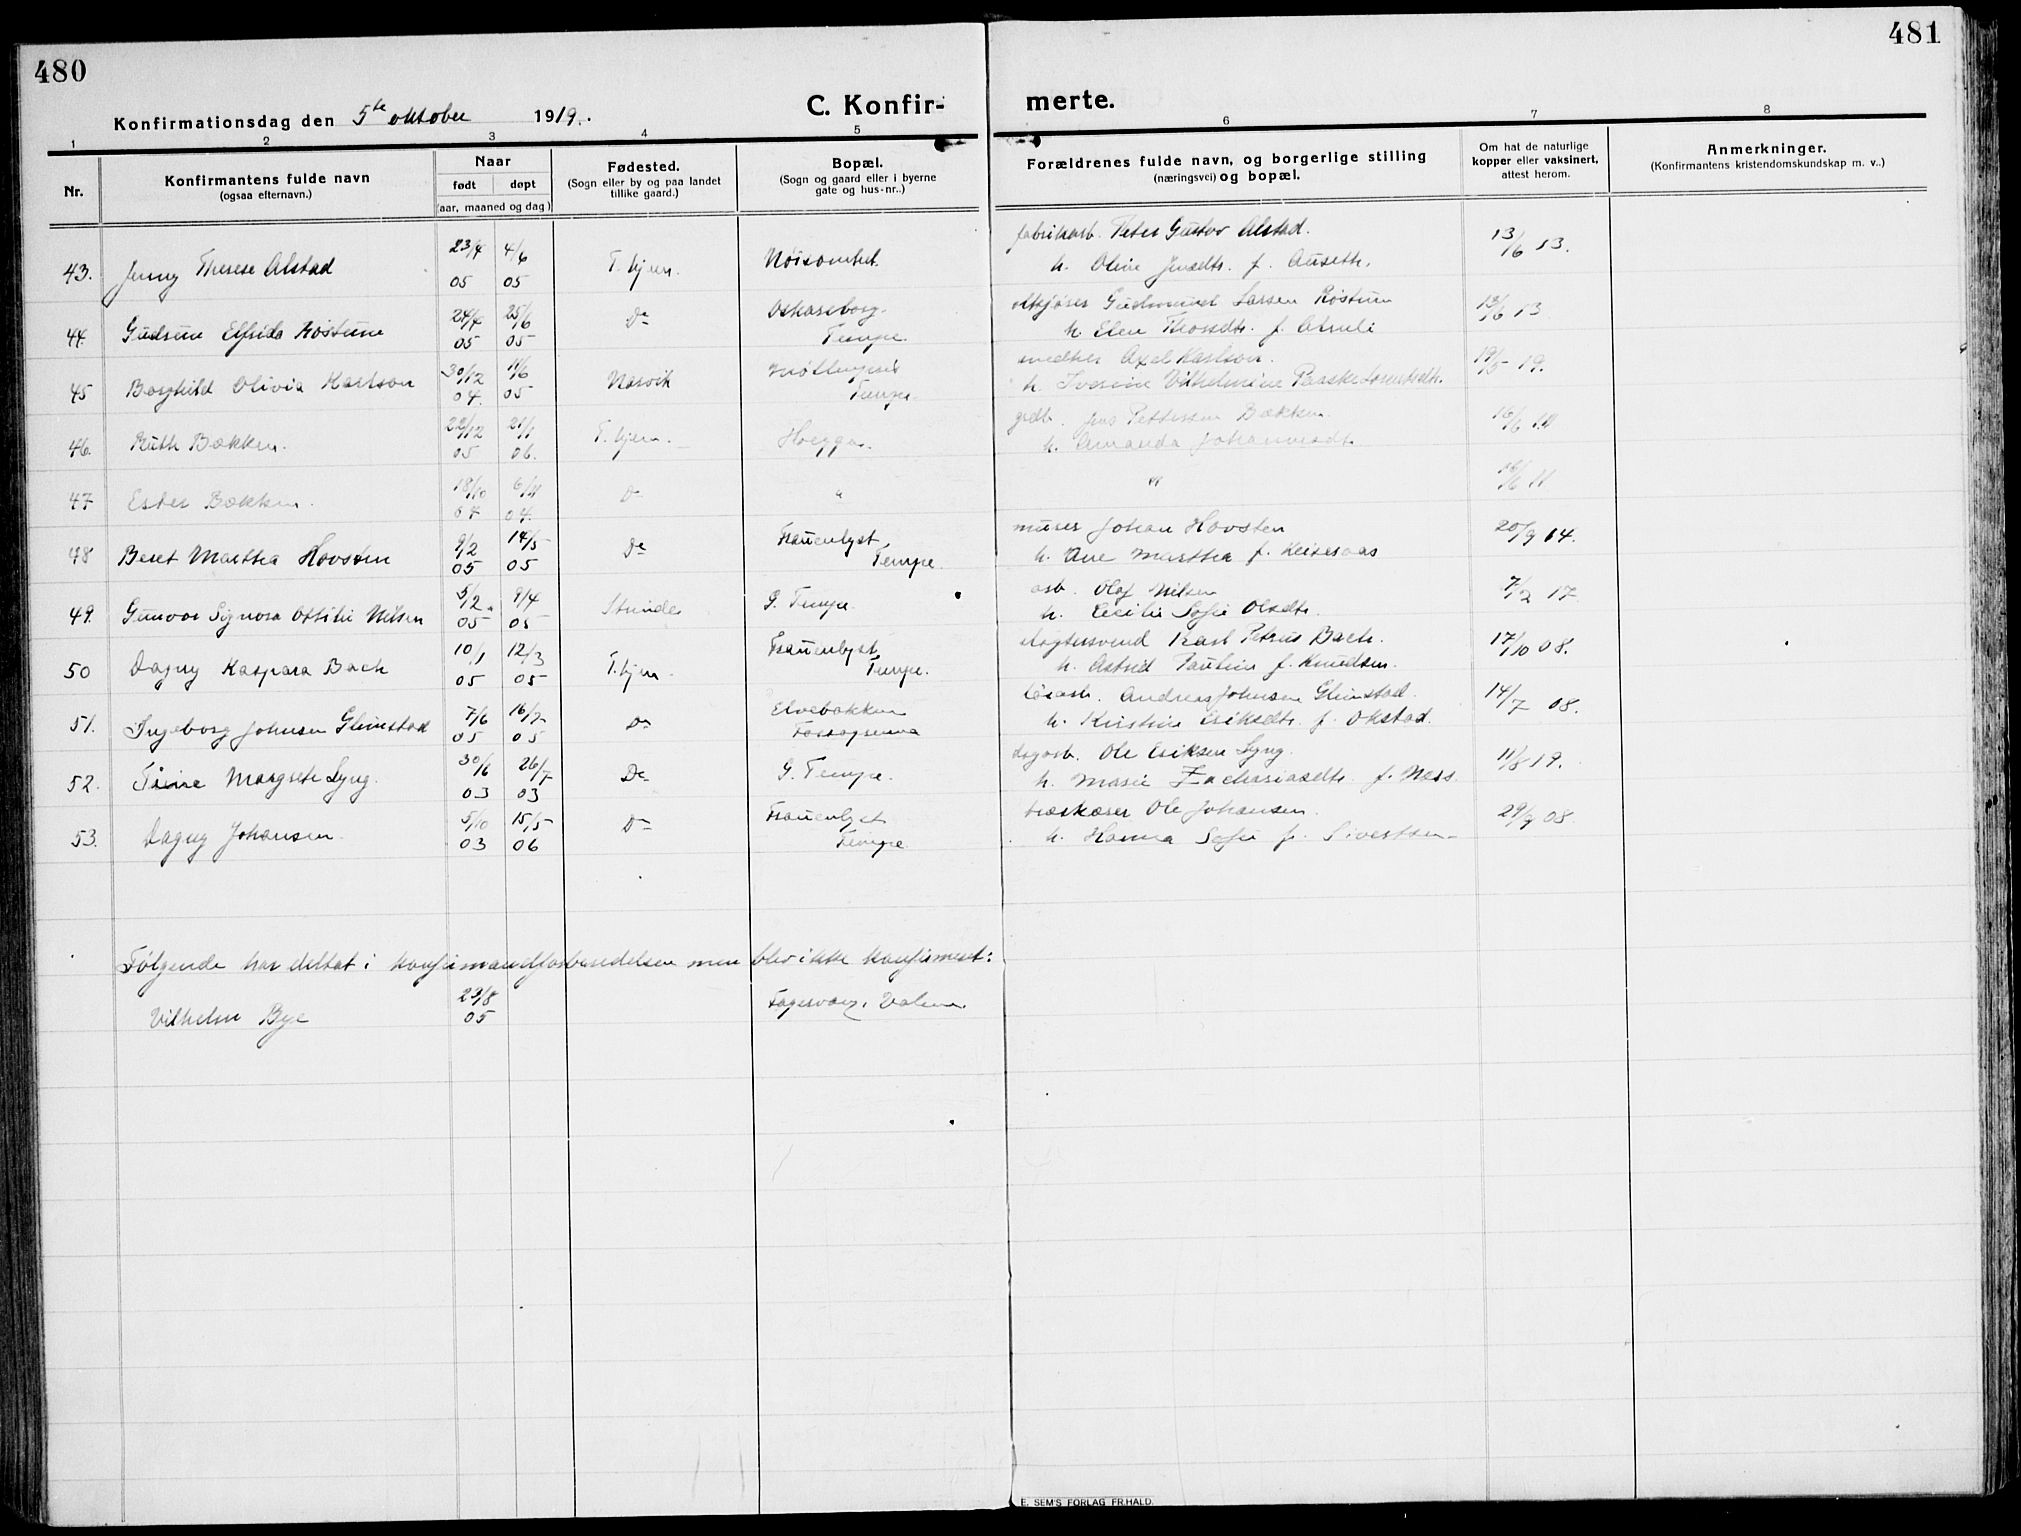 480
481
Konfirmationsdag den 5te oktober 1919.
C. Konfirmerte.
1 2 3 4 5 6 7 8
Nr.
Konfirmantens fulde navn
(ogsaa efternavn.)
Naar
født døpt
(aar, maaned og dag)
Fødested.
(Sogn eller by og paa landet
tillike gaard.)
Bopæl.
(Sogn og gaard eller i byerne
gate og hus-nr..)
Forældrenes fulde navn, og borgerlige stilling
(næringsvei) og bopæl.
Om hat de naturlige
kopper eller vaksinert,
attest herom.
Anmerkninger.
(Konfirmantens kristendomskundskap m. v..)
23/4 4/6 fabrikarb. Peter Gustav Alstad. 13/6 13.
43. Jenny Therese Alstad 05 05 T.hjem. Nöisomhet. h. Oline Jensdtr. f. Auseth.
24/4 25/6 Oskarsborg. Gudmund Larsen Röstum 13/6 13
44. Gudrun Elfrida Röstum 05 05 Do Tempe. h. Elen Thorsdtr. f.
30/12 11/6 Axel Karlson. 19/5 19.
45 Borghild Olivia Karlson 04. 05 Narvik Tempe. h. Vilhelmine
22/12 21/1 grdb. Jens Pettersen Bækken. 16/6 11
46. Ruth Bækken. 05 06. T.hjem. Hoeggen. h. Amanda Johannesdt.
18/10 6/11 16/6 11
47 Ester Bækken. 04 04. Do " "
9/2 14/5 Frauenlyst murer Johan Hovsten 20/9 14.
48 Beret Marthea Hovsten 05 05 Do Tempe. h. Ane Marthea f. Keiseraas
5/2 9/4 arb. Olaf Nilsen 7/2 17
49. Gunvor Signora Ottilie Nilsen 05 05 Strinden G. Tempe. h. Cecilie Sofie Olsdtr.
10/1 12/3 Frauenlyst slagtersvend Karl Petrus Bach. 17/10 08.
50 Dagny Kaspara Bach 05 05 T.hjem. Tempe. h. Astrid f. Knudsen.
7/6 16/7 Elvebakken løsarb. Andreas Johnsen Glimstad. 14/7 08.
51. Ingeborg Johnsen Glimstad 05 05 Do h. Kristine Eriksdtr. f. Okstad.
30/6 26/7 dagarb. Ole Eriksen Lyng. 11/8 19.
52. Trine Margrete Lyng. 03 03 Do G. Tempe. h. Marie Zachariasdtr. f. Ness.
5/10 15/5 Frauenlyst Ole Johansen. 29/9 08.
53. Dagny Johansen. 03 06 Do Tempe h. Hanna Sofie f. Sivertsen
Følgende har deltat i konfirmandforberedelsen men blev ikke konfirmert:
29/8
Vilhelm Bye 05 Fagervang, Valene.
E. SEM'S FORLAG FR.HALD.